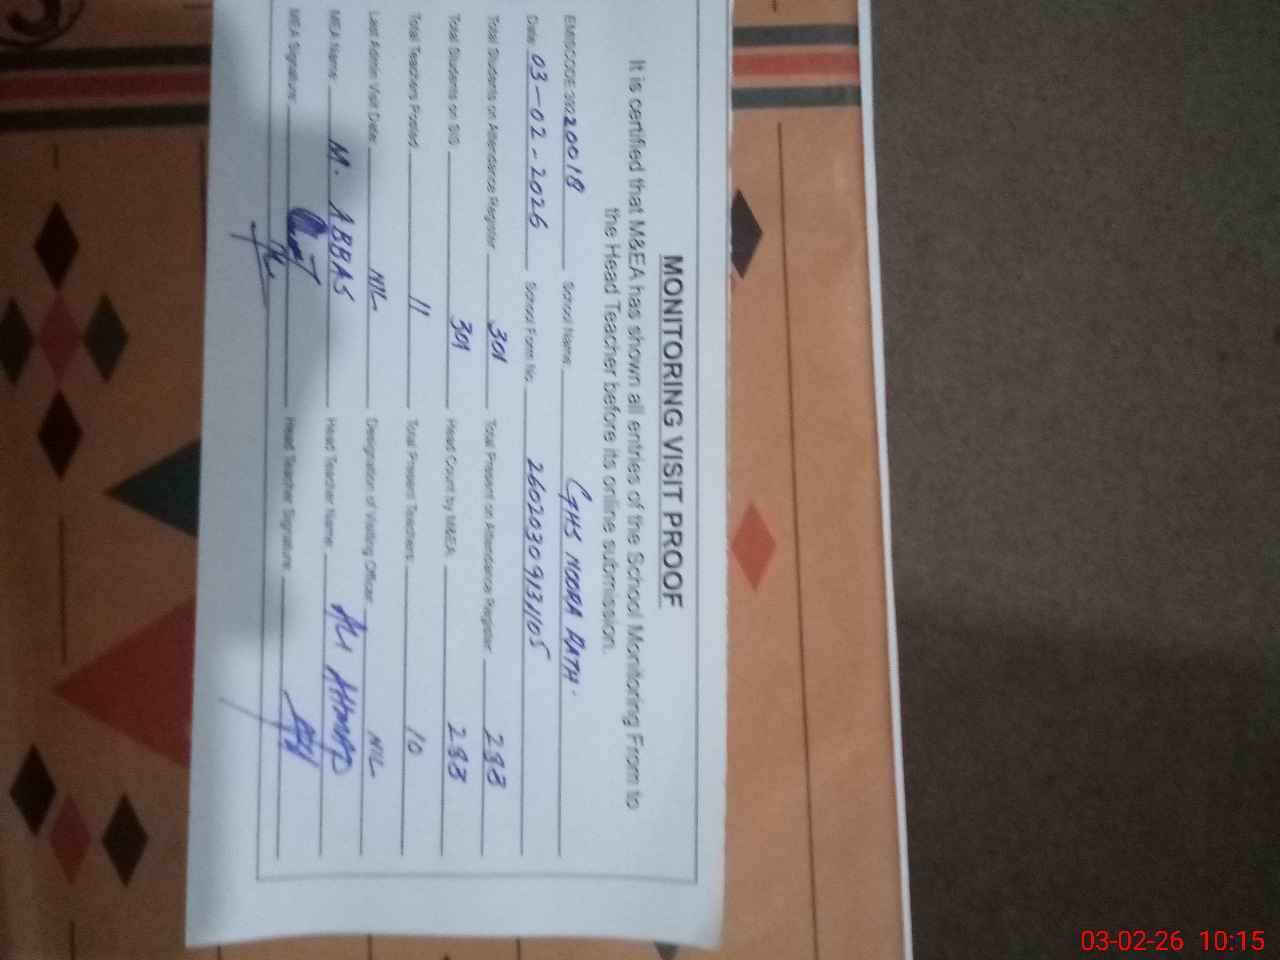 MONITORING VISIT PROOF
It is certified that M&EA has shown all entries of the School Monitoring From to
the Head Teacher before its online submission.
EMISCODE: School Name: GHS NOORA RATH.
Date: 03-02-2026 School Form No. 26020309131105
Total Students on Attendance Register: 301 Total Present on Attendance Register: 288
Total Students on SIS: 301 Head Count by M&EA: 288
Total Teachers Posted: 11 Total Present Teachers: 10
Last Admin Visit Date: NIL Designation of Visiting Officer: NIL
MEA Name: M. ABBAS Head Teacher Name:
MEA Signature: Head Teacher Signature:
03-02-26 10:15